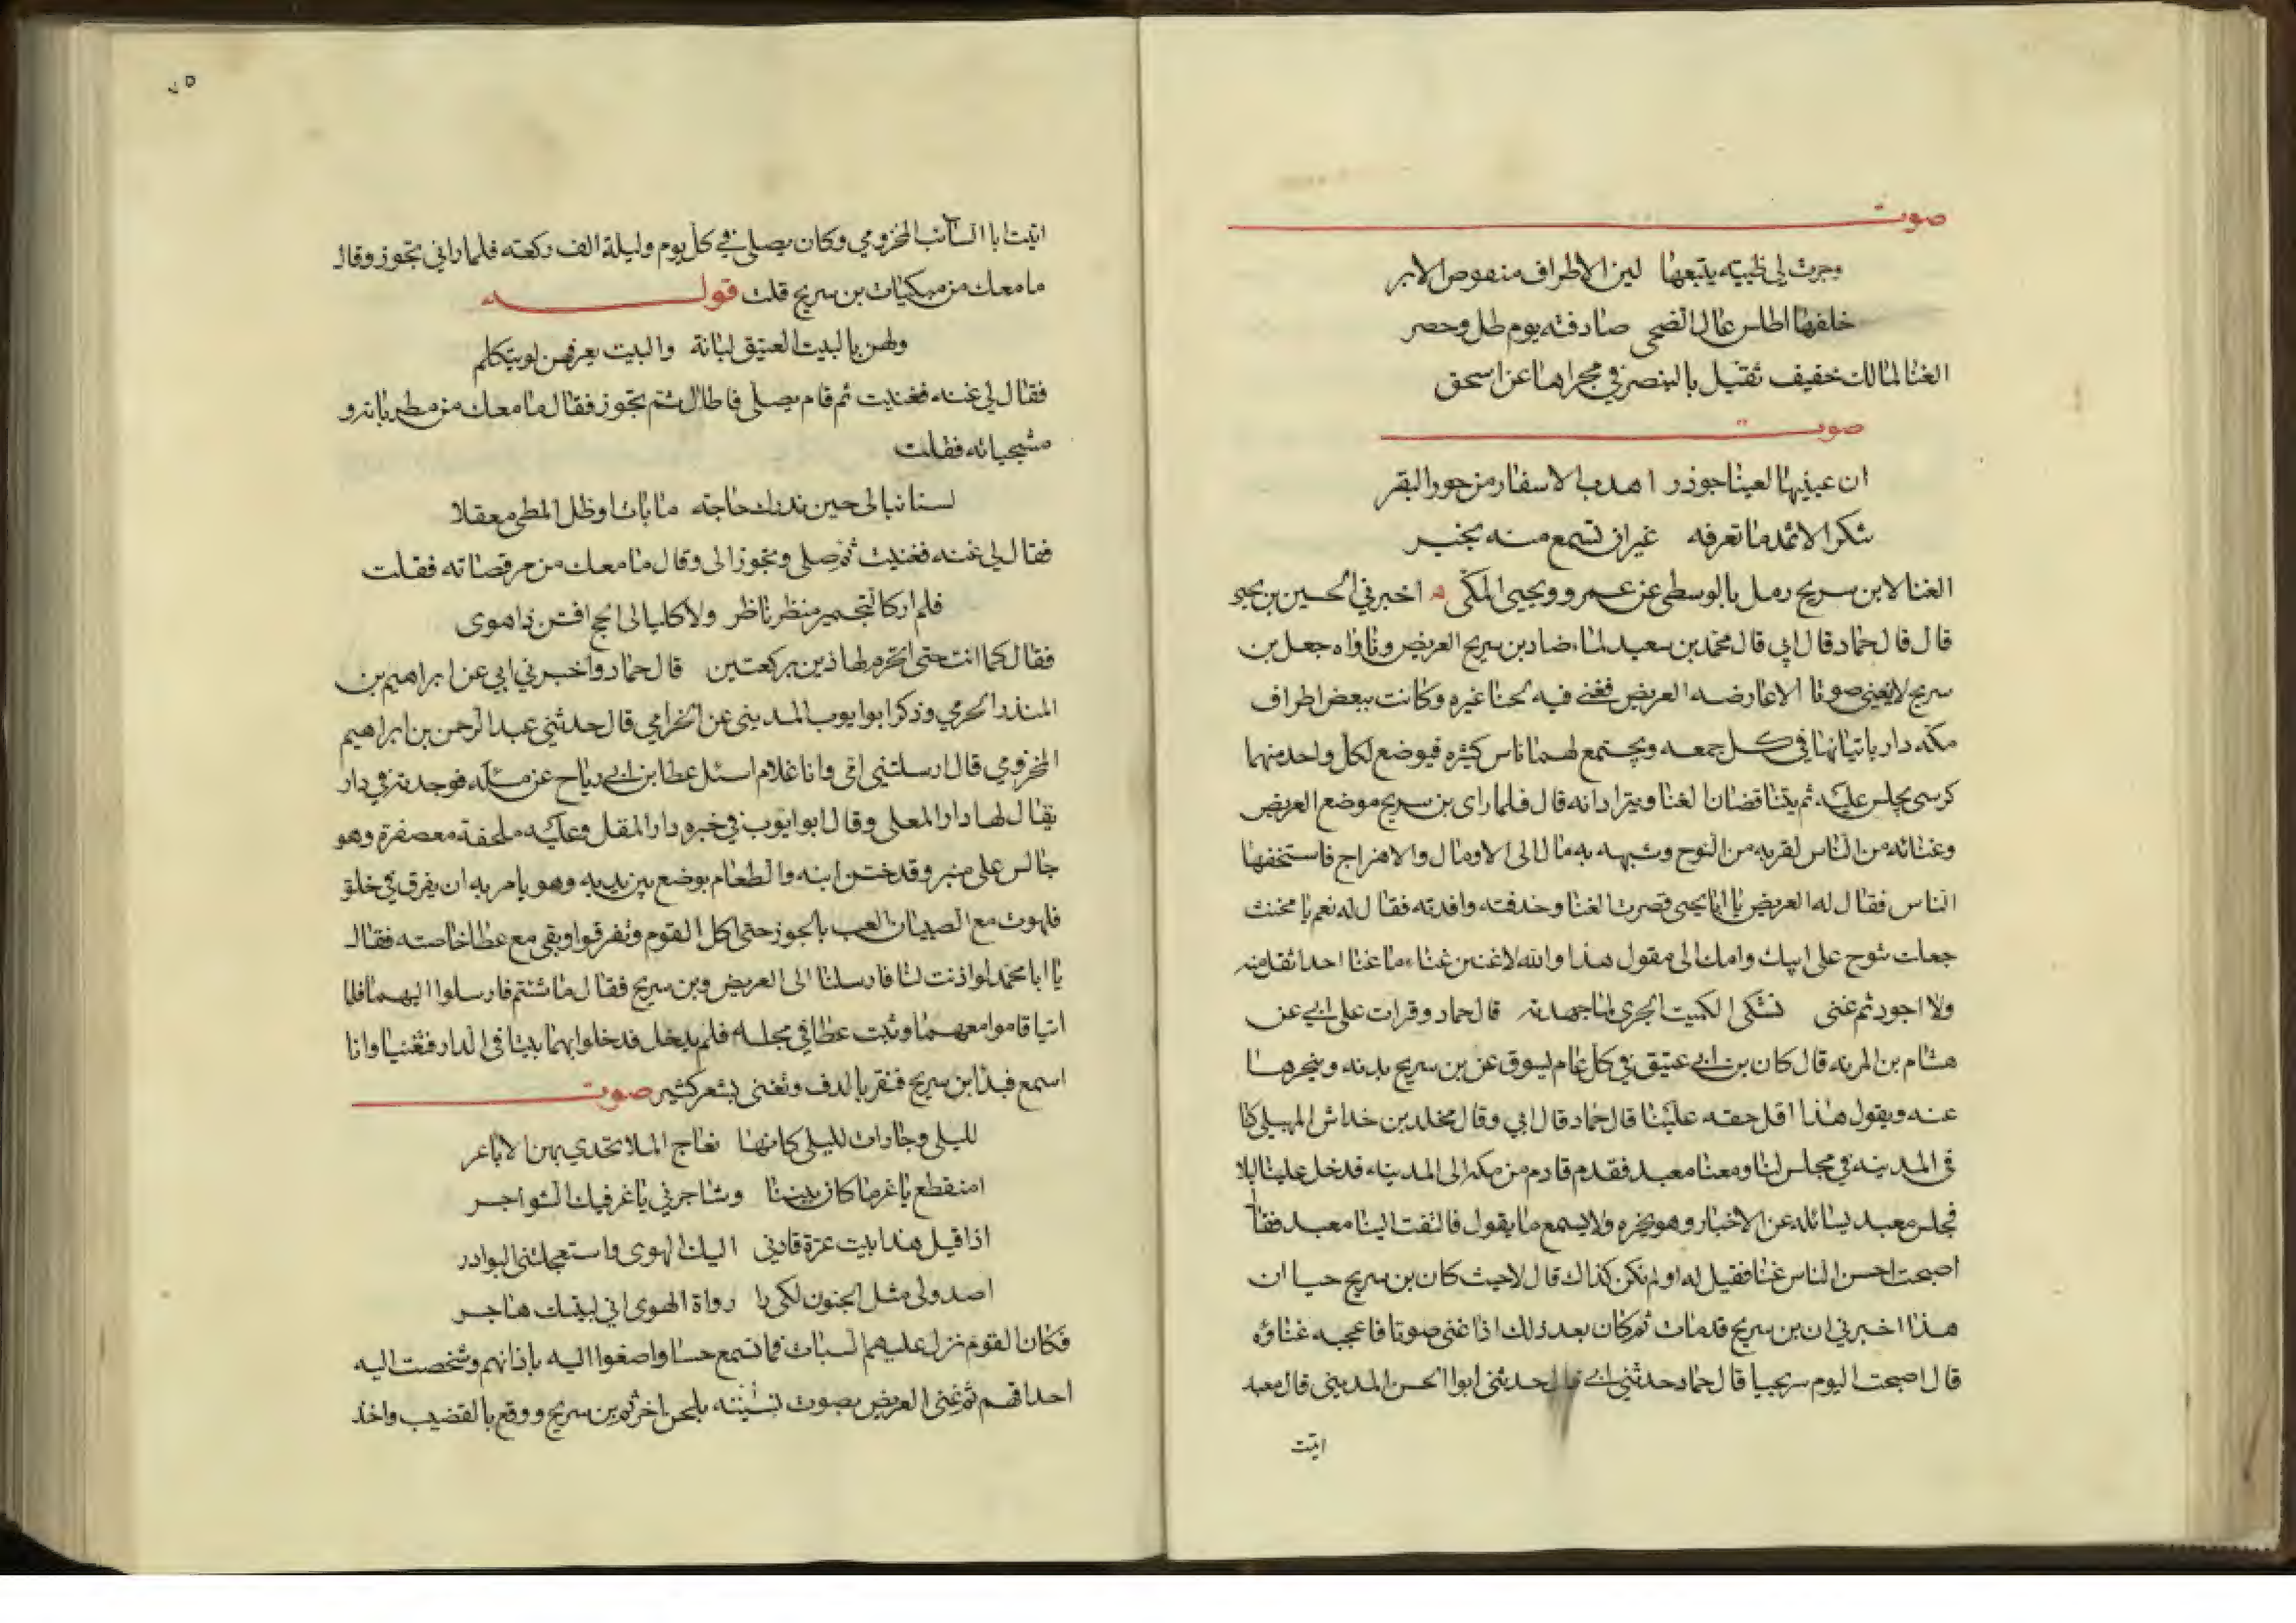 صوت
وجرت لي ظبيته يتبعها لين الاطراف منهوص الابر
خلفها اطلس عال الضحى صادفته يوم طل وحصر
الغنا لمالك خفيف ثقيل بالبنصر في مجراها عن اسحق
صوت
ان عينيها لعينا جوذر اهدب الاسفار من حور البقر
شكرا لاثمد ما تعرفه غير ان تسمع منه بخبر
الغنا لابن سريج رمل بالوسطى عن عمرو ويحيى المكى اخبرني الحسين بن يحيى
قال قال حماد قال ابي قال محمد بن سعيد لما ضاد بن سريج العريض وناواه جعل بن
سريج لا يغني صوتا الا عارضه العريض فغنى فيه لحنا غيره وكانت ببعض اطراف
مكه دار ياتيانها في كل جمعه ويجتمع لهما ناس كثيره فيوضع لكل واحد منهما
كرسى يجلس عليه ثم يتناقضان الغنا ويترادانه قال فلما راى بن سريج موضع العريض
وغنائه من الناس لقربه من النوح وشبهه به مال الى الاومال والاهزاج فاستخفها
الناس فقال له العريض يا ابا يحيى قصرت الغنا وحذفته وافدته فقال له نعم يا مخنث
جعلت تنوح على ابيك وامك الى مقول هذا والله لاغنين غناء ما غنا احد اثقل منه
ولا اجود ثم غنى تشكى الكميت الجرى لما جهدته قال حماد وقرات على ابي عن
هشام بن المريه قال كان بن ابي عتيق في كل عام يسوق عن بن سريج بدنه وينحرها
عنه ويقول هذا اقل حقه علينا قال حماد قال ابي وقال مخلد بن خداش المهبلى كنا
فى المدينه في مجلس لنا ومعنا معبد فقدم قادم من مكه الى المدينه فدخل علينا ليلا
فجلس معبد يسائله عن الاخبار وهو يخبره ولا يسمع ما يقول فالتفت الينا معبد فقال
اصبحت احسن الناس غنا فقيل له او لم تكن كذلك قال لا حيث كان بن سريج حيا ان
هذا اخبرني ان بن سريج قد مات ثم كان بعد ذلك اذا غنى صوتا فاعجبه غناؤه
قال اصبحت اليوم سريجيا قال حماد حدثني ابي قال حدثنى ابوا الحسن المدينى قال معبد
اتيت
اتيت ابا السائب المخزومي وكان يصلي في كل يوم وليلة الف ركعته فلما راني تجوز وقال
ما معك من مبكيات بن سريج قلت قوله
ولهن بالبيت العتيق لبانة والبيت يعرفهن لو يتكلم
فقال لي غنه فغنيت ثم قام يصلي فاطال ثم تجوز فقال ما معك من مطرباته و
مشجياته فقلت
لسنا نبالى حين ندرك حاجته ما بات او ظل المطى معقلا
فقال لي غنه فغنيت ثم صلى وتجوز الى وقال ما معك من مرقصاته فقلت
فلم ار كالتجمير منظر ناظر ولا كليالى الحج افتن ذا هوى
فقال كما انت حتى اتحرم لهاذين بركعتين قال حماد واخبرني ابي عن ابراهيم بن
المنذر الحرمي وذكر ابوا يوب المديني عن الحرامي قال حدثني عبد الرحمن بن ابراهيم
المخزومي قال ارسلتني امى وانا غلام اسئل عطا بن ابي رياح عن مسئله فوجدته في دار
يقال لها دار المعلى وقال ابوا يوب في خبره دار المقل وعليه ملحفة معصفرة وهو
جالس على منبر وقد ختن ابنه والطعام يوضع بين يديه وهو يامر به ان يفرق في خلق
فلهوت مع الصبيان العب بالجوز حتى اكل القوم وتفرقوا وبقى مع عطا خاصته فقال
يا ابا محمد لو اذنت لنا فارسلنا الى العريض وبن سريج فقال ما شئتم فارسلوا اليهما فلما
اتيا قاموا معهما وثبت عطا في مجلسه فلم يدخل فدخلوا بهما بيتا فى الدار فتغنيا وانا
اسمع فبدا بن سريج فنقر بالدف وتغنى بشعر كثير صوت
لليلى وجارات لليلى كانها نعاج الملا تحدي بهن الاباعر
امنقطع يا عز ما كان بيننا وشاجرني يا عز فيك الشواجر
اذا قيل هذا بيت عزة قادني اليك الهوى واستعجلتني البوادر
اصد ولى مثل الجنون لكى را رواة الهوى اني لبيتك هاجر
فكان القوم نزل عليهم السبات فما تسمع حسا واصغوا اليه باذانهم وشخصت اليه
احداقهم ثم غنى العريض بصوت بلحن اخر ثم بن سريج ووقع بالقضيب واخذ